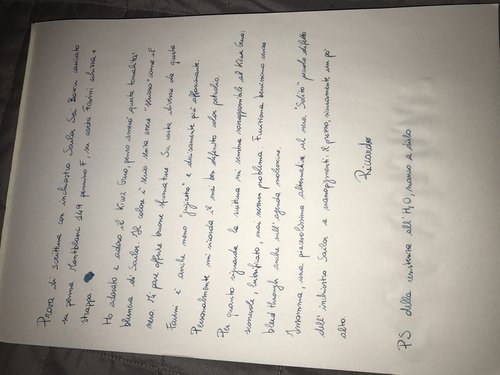 Prova di scrittura con inchiostro Sailor Sei Boku caricato
su penna Montblanc 149 pennino F, su carta Favini schizza e
strappa
Ho adorato e adoro il Kiwa Guro, penso amerò questa tonalità
bluenera di Sailor. Il colore è scuro senza essere "chiuso" come il
nero. Mi pare offrire buone sfumature. Su carta diversa da questa
Favini è anche meno e decisamente più affascinante.
Personalmente mi ricorda il mai ben definito color petrolio.
Per quanto riguarda la scrittura mi sembra sovrapponibile al Kiwa Guro:
scorrevole, lubrificato, mai nessun problema. Funziona benissimo senza
bleedthrough anche sull'agenda moleskine.
Insomma, una piacevolissima alternativa al nero. "Solito" piccolo difetto
dell'inchiostro Sailor a nanopigmenti: il prezzo, sicuramente un po'
alto.
Riccardo
PS della resistenza all'H2O, nemmeno a dirlo